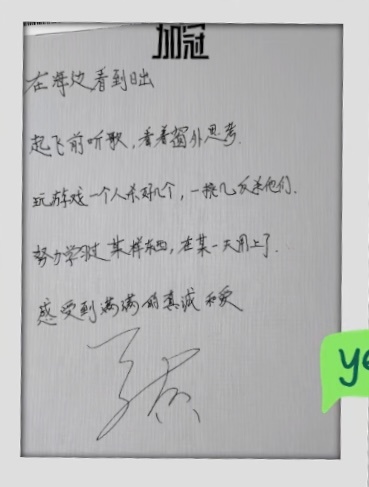 加冠
在海边看到日出
起飞前听歌，看着窗外思考.
玩游戏一个人杀好几个，一挑几反杀他们.
努力学习过某样东西，在某一天用上了.
感受到满满的真诚和爱
ye